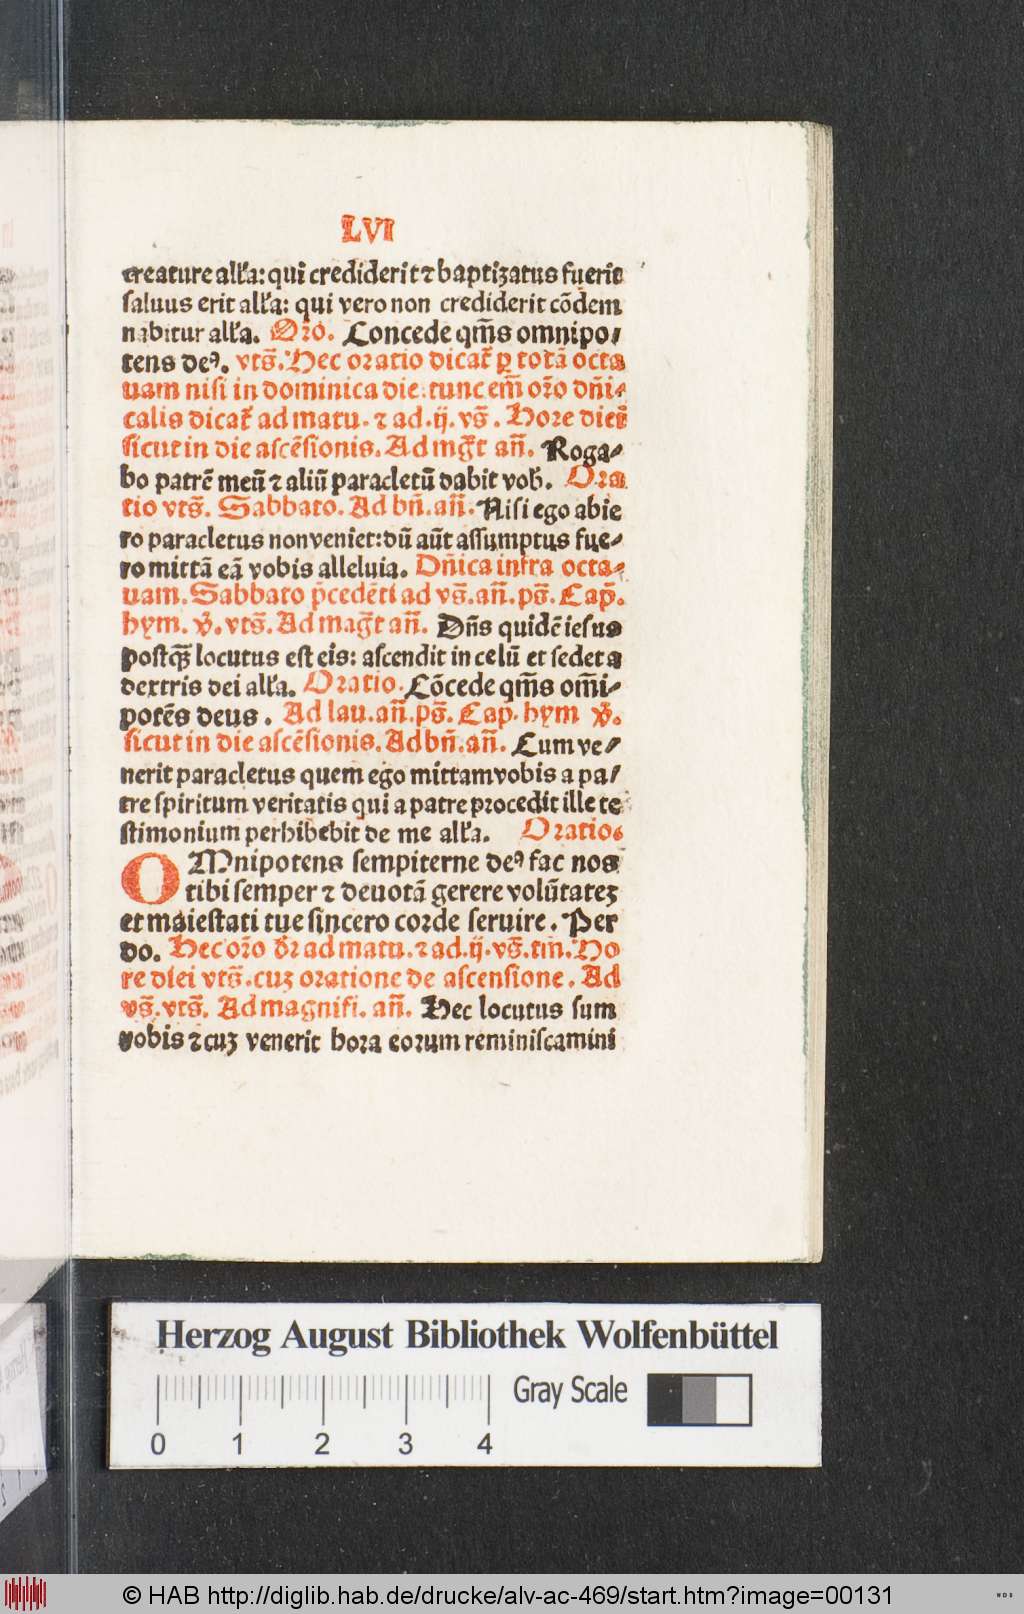 LVI
creature all'a: qui crediderit ⁊ baptiʒatus fuerit
saluus erit all'a: qui vero non crediderit cōdem
nabitur all'a. Oro. Concede qm̄s omnipo/
tens deꝰ. vts̄. Hec oratio dicat̛ ꝑ totā octa
uam nisi in dominica die: tunc em̄ oro dn̄i/
calis dicat̛ ad matu. ⁊ ad .ij. vs̄. Hore diei
sicut in die ascēsionis. Ad mgt̄ an̄. Roga/
bo patrē meū ⁊ aliū paracletū dabit vob̛. Ora
tio vts̄. Sabbato. Ad bn̄. an̄. Nisi ego abie
ro paracletus non veniet: dū aūt assumptus fue/
ro mittā eā vobis alleluia. Dn̄ica infra octa/
uam. Sabbato p̄cedēti ad vs̄. an̄. ps̄. Cap̄.
hym. v̛. vts̄. Ad magt̄ an̄. Dn̄s quidē iesus
postqꝫ̄ locutus est eis: ascendit in celū et sedet a
dextris dei all'a. Oratio. Cōcede qm̄s om̄i/
potēs deus. Ad lau. an̄. ps̄. Cap. hym v̛.
sicut in die ascēsionis. Ad bn̄. an̄. Cum ve/
nerit paracletus quem ego mittam vobis a pa/
tre spiritum veritatis qui a patre procedit ille te
stimonium perhibebit de me all'a. Oratio.
OMnipotens sempiterne deꝰ fac nos
tibi semper ⁊ deuotā gerere volūtateʒ
et maiestati tue sincero corde seruire. Per
do. Hec oro dr̄ ad matu. ⁊ ad .ij. vs̄. tm̄. Ho
re diei vts̄. cuʒ oratione de ascensione. Ad
vs̄. vts̄. Ad magnifi. an̄. Hec locutus sum
vobis ⁊ cuʒ venerit hora eorum reminiscamini
Herzog August Bibliothek Wolfenbüttel
Gray Scale
0 1 2 3 4
© HAB http://diglib.hab.de/drucke/alv-ac-469/start.htm?image=00131